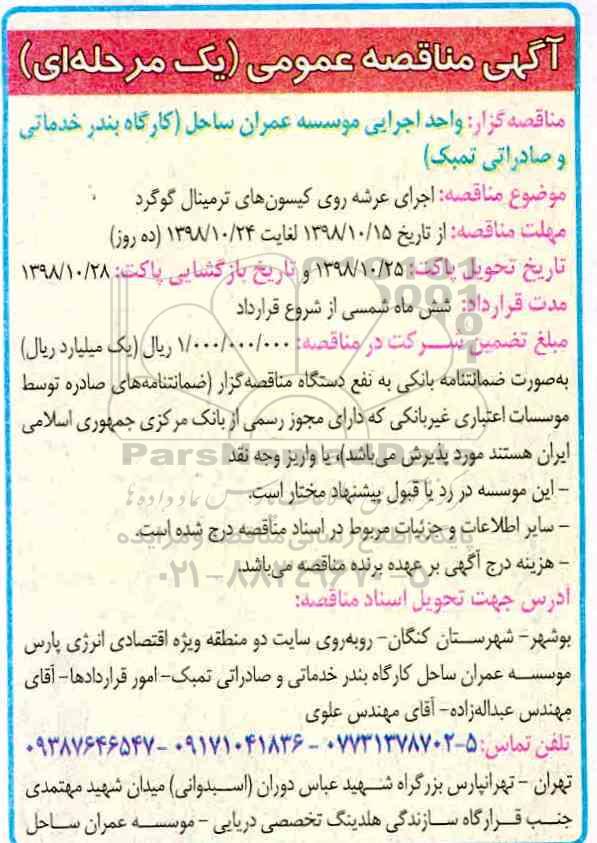 آگهی مناقصه عمومی (یک مرحله‌ای)
مناقصه‌گزار: واحد اجرایی موسسه عمران ساحل (کارگاه بندر خدماتی
و صادراتی تمبک)
موضوع مناقصه: اجرای عرشه روی کیسون‌های ترمینال گوگرد
مهلت مناقصه: از تاریخ ۱۳۹۸/۱۰/۱۵ لغایت ۱۳۹۸/۱۰/۲۴ (ده روز)
تاریخ تحویل پاکت: ۱۳۹۸/۱۰/۲۵ و تاریخ بازگشایی پاکت: ۱۳۹۸/۱۰/۲۸
مدت قرارداد: شش ماه شمسی از شروع قرارداد
مبلغ تضمین شرکت در مناقصه: ۱/۰۰۰/۰۰۰/۰۰۰ ریال (یک میلیارد ریال)
به‌صورت ضمانتنامه بانکی به نفع دستگاه مناقصه‌گزار (ضمانتنامه‌های صادره توسط
موسسات اعتباری غیربانکی که دارای مجوز رسمی از بانک مرکزی جمهوری اسلامی
ایران هستند مورد پذیرش می‌باشد)، یا واریز وجه نقد
ParsNamadData
- این موسسه در رد یا قبول پیشنهاد مختار است.
- سایر اطلاعات و جزئیات مربوط در اسناد مناقصه درج شده است.
پایگاه اطلاع رسانی مناقصه و مزایده
- هزینه درج آگهی بر عهده برنده مناقصه می‌باشد.
۰۲۱-۸۸۳۴۹۶۷۰-۵
آدرس جهت تحویل اسناد مناقصه:
بوشهر- شهرستان کنگان- روبه‌روی سایت دو منطقه ویژه اقتصادی انرژی پارس
موسسه عمران ساحل کارگاه بندر خدماتی و صادراتی تمبک- امور قراردادها- آقای
مهندس عبداله‌زاده- آقای مهندس علوی
تلفن تماس: ۵-۰۷۷۳۱۳۷۸۷۰۲ - ۰۹۱۷۱۰۴۱۸۳۶ - ۰۹۳۸۷۶۴۶۵۴۷
تهران - تهرانپارس بزرگراه شهید عباس دوران (اسبدوانی) میدان شهید مهتمدی
جنب قرارگاه سازندگی هلدینگ تخصصی دریایی - موسسه عمران ساحل